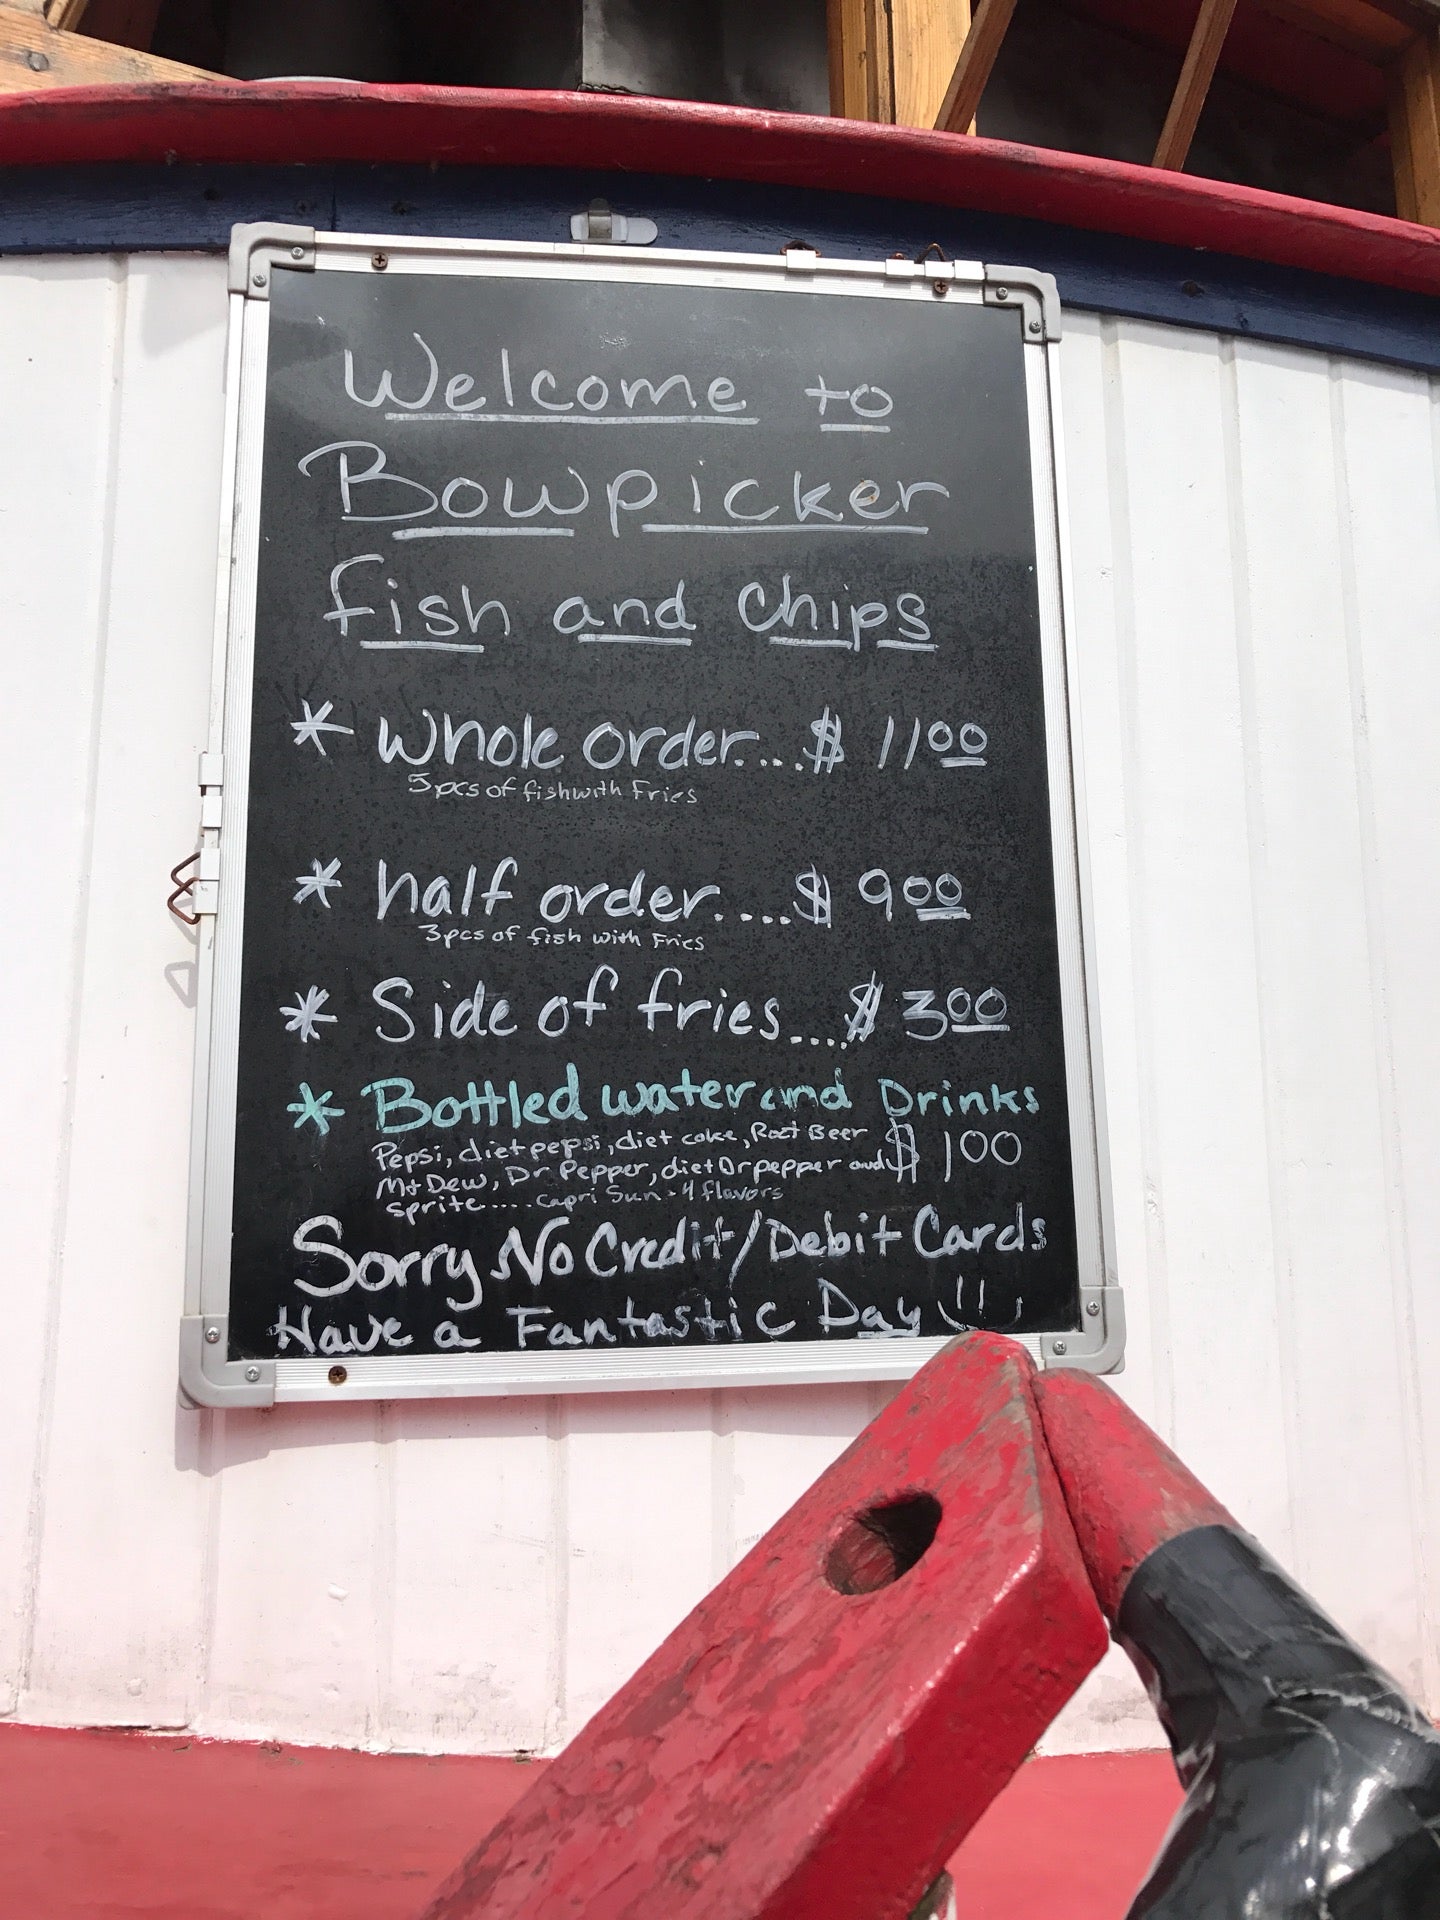 Welcome to
Bowpicker
fish and chips
* whole order....$ 11 00
5pcs of fish with Fries
* half order....$ 9 00
3pcs of fish with Fries
* Side of fries....$ 3 00
* Bottled water and Drinks
Pepsi, diet pepsi, diet coke, Root Beer
Mt Dew, Dr. Pepper, diet Dr pepper and $ 1 00
sprite.... capri Sun - 4 flavors
Sorry No Credit/Debit Cards
Have a Fantastic Day!!!